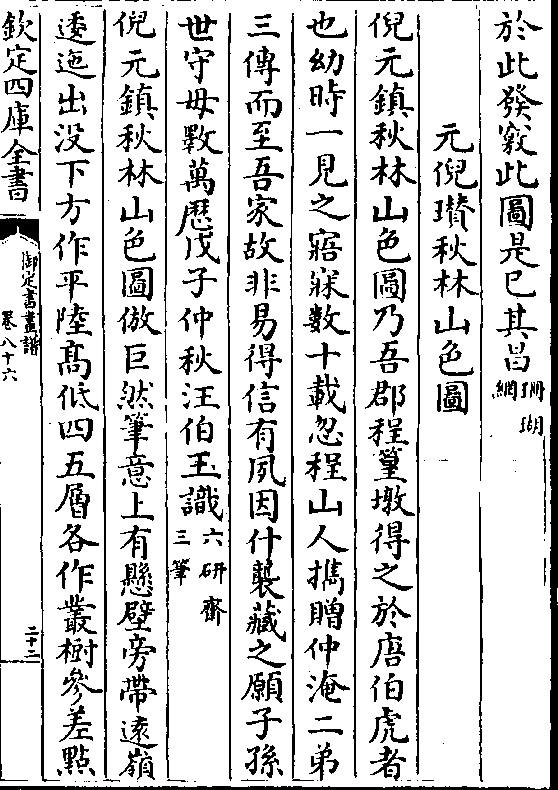 於此發竅此圖是已其昌珊瑚網
元倪瓚秋林山色圖
倪元鎮秋林山色圖乃吾郡程篁墩得之於唐伯虎者
也幼時一見之寤寐數十載忽程山人攜贈仲淹二弟
三傳而至吾家故非易得信有夙因什襲藏之願子孫
世守毋斁萬歷戊子仲秋汪伯玉識六研齋三筆
倪元鎮秋林山色圖倣巨然筆意上有懸壁旁帶遠嶺
逶迤出没下方作平陸髙低四五層各作叢樹參差點
欽定四庫全書
御定書畫譜
卷八十六
二十二